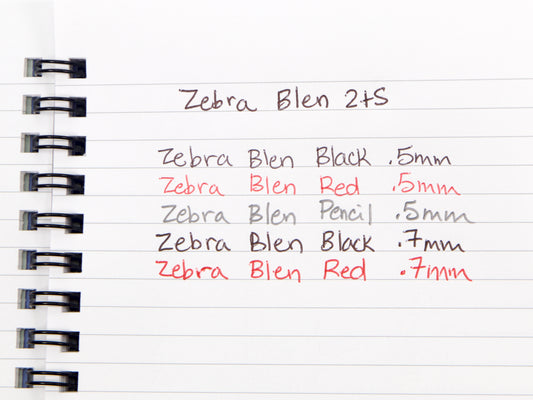 Zebra Blen 2+S
Zebra Blen Black .5mm
Zebra Blen Red .5mm
Zebra Blen Pencil .5mm
Zebra Blen Black .7mm
Zebra Blen Red .7mm